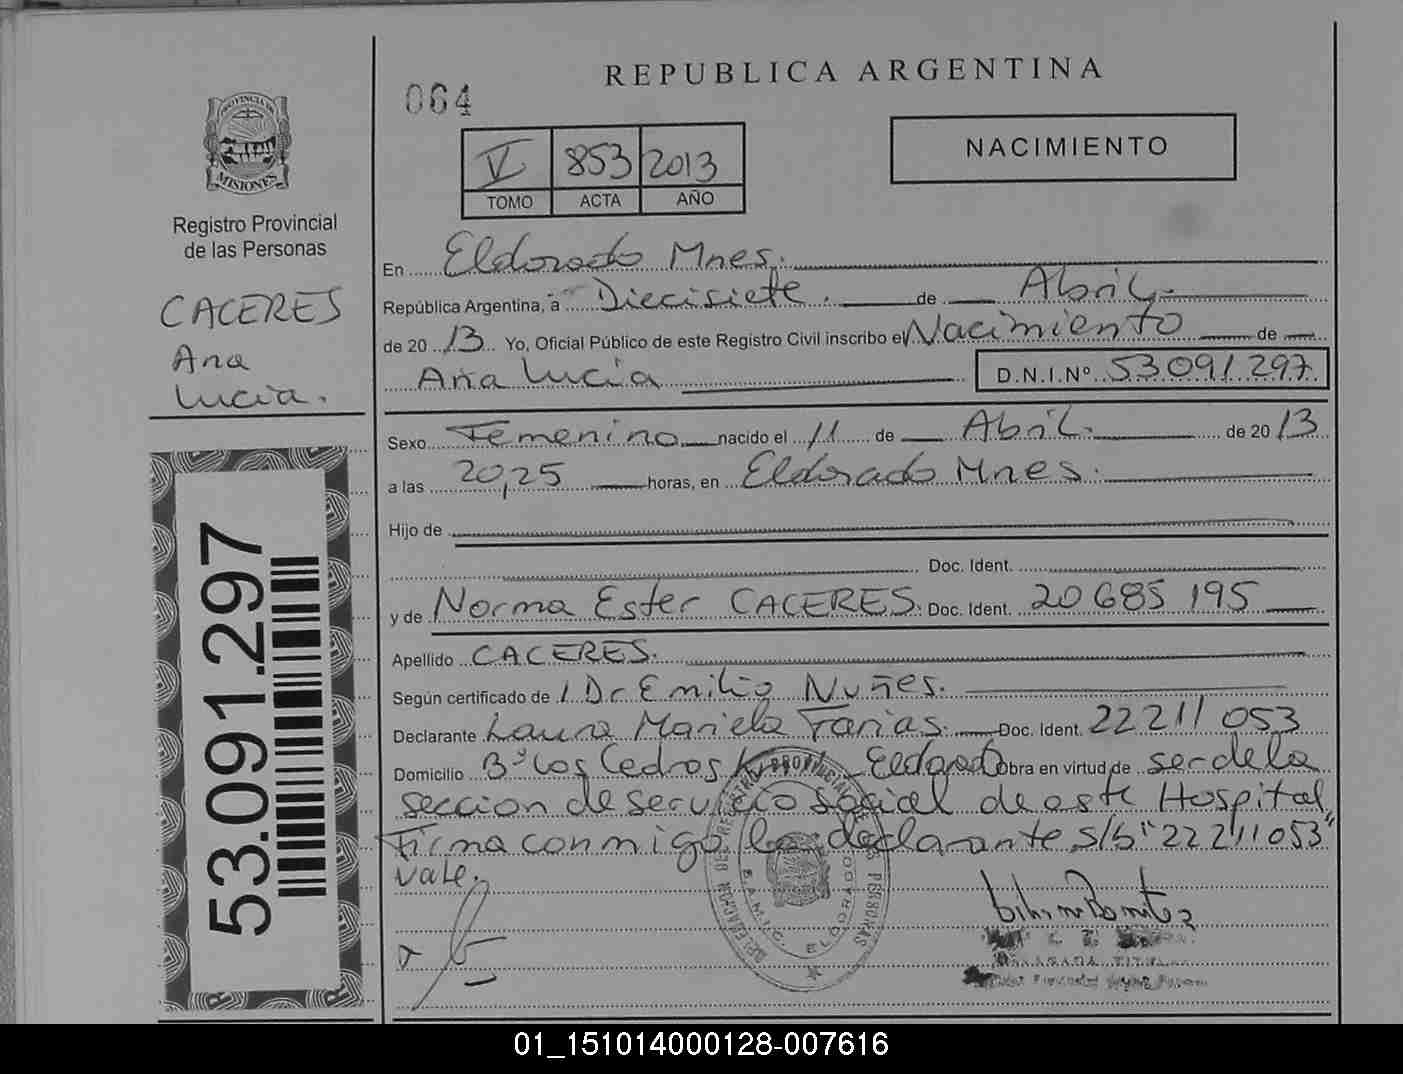 REPUBLICA ARGENTINA
064
PROVINCIA DE
MISIONES
Registro Provincial
de las Personas
CACERES
Ana
Lucia.
53.091.297
V 853 2013
TOMO ACTA AÑO
NACIMIENTO
En Eldorado Mnes.
República Argentina, a Diecisiete. de Abril.
de 20 13 Yo, Oficial Público de este Registro Civil inscribo el Nacimiento de
Ana Lucia D.N.I.Nº 53091297
Sexo Femenino nacido el 11 de Abril. de 20 13
a las 20,25 horas, en Eldorado Mnes.
Hijo de
Doc. Ident.
y de Norma Ester CACERES. Doc. Ident. 20 685 195
Apellido CACERES.
Según certificado de Dr Emilio Nuñes.
Declarante Laura Mariela Farias. Doc. Ident. 22211 053
Domicilio Bº Los Cedros Eldorado Obra en virtud de ser de la
seccion de servicio social de este Hospital
Firma conmigo la declarante s/b "22211053"
vale.
PERSONAS
ELDORADO
01_151014000128-007616